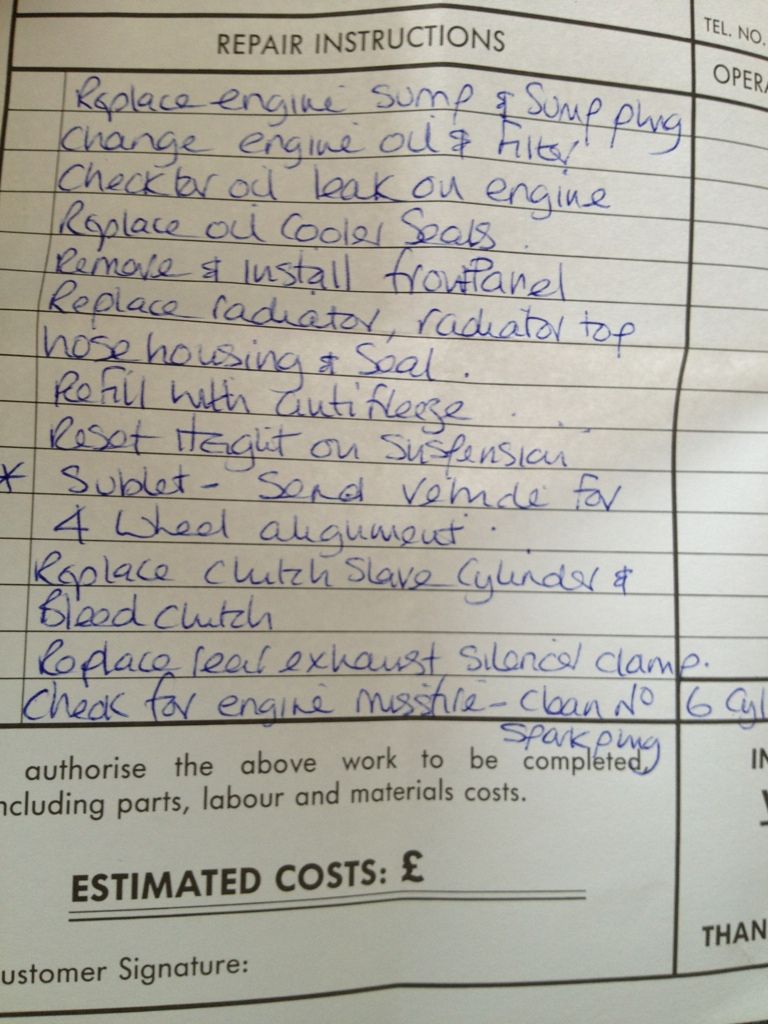 REPAIR INSTRUCTIONS
TEL. NO.
OPERA
Replace engine sump & Sump plug
change engine oil & Filter
Check for oil leak on engine
Replace oil Cooler Seals.
Remove & install front Panel
Replace radiator, radiator top
hose housing & Seal.
Refill with antifreeze.
Reset Height on suspension
* Sublet - Send vehicle for
4 Wheel alignment.
Replace Clutch Slave Cylinder &
Bleed Clutch
Replace rear exhaust Silencer clamp.
Check for engine missfire - Clean No 6 Cyl
Spark plug
authorise the above work to be completed,
ncluding parts, labour and materials costs.
IN
ESTIMATED COSTS: £
THAN
ustomer Signature: